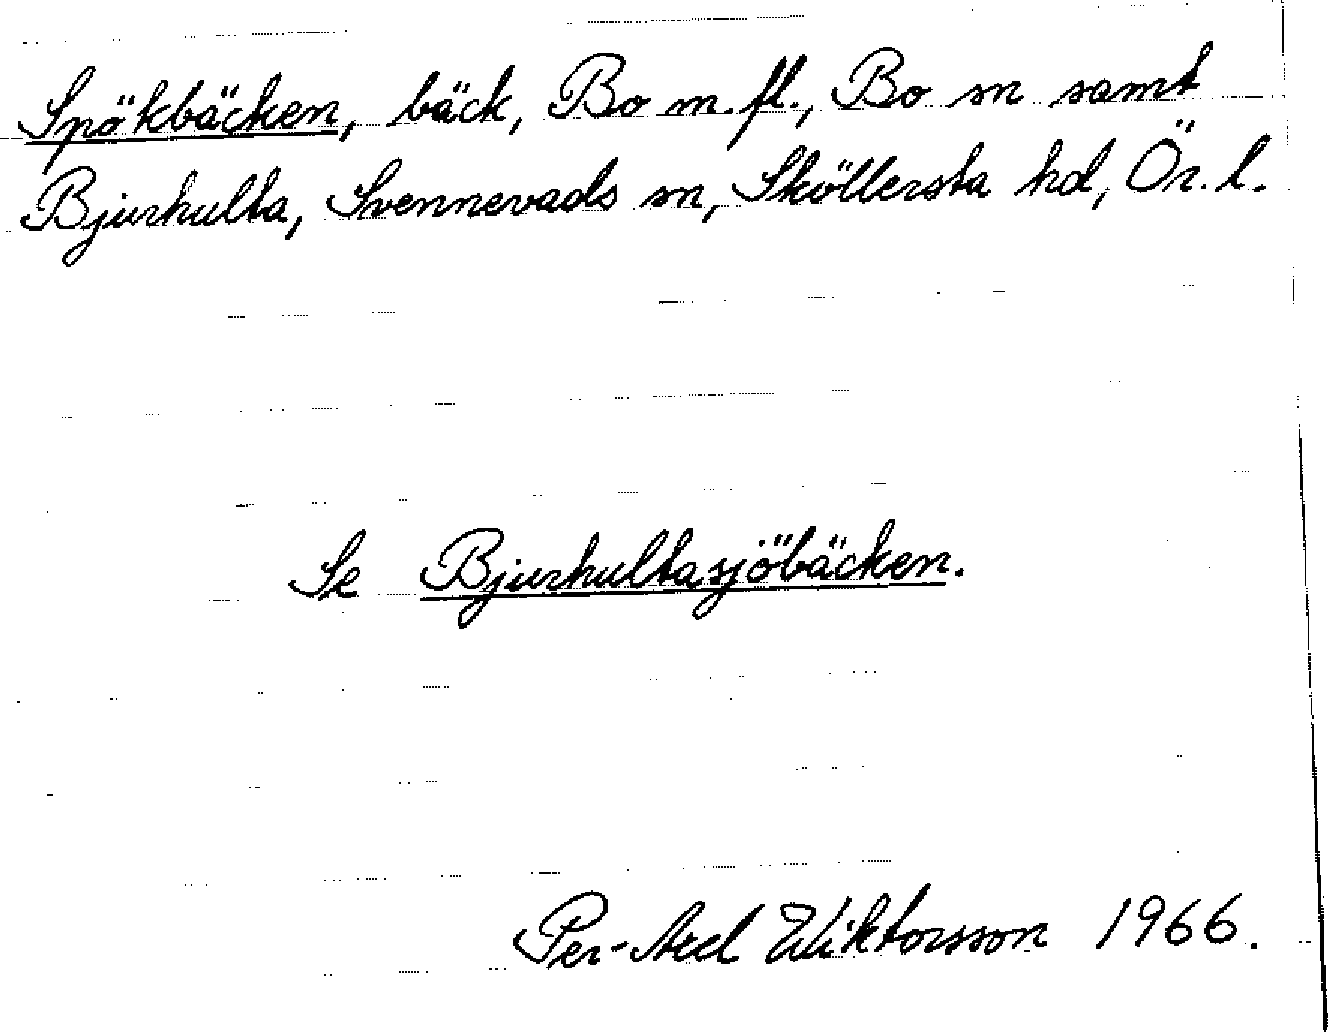 Spökbäcken, bäck, Bo m.fl., Bo sn samt
Bjurhulta, Svennevads sn, Sköllersta hd, Ör. l.
Se Bjurhultasjöbäcken.
Per-Axel Wiktorsson 1966.